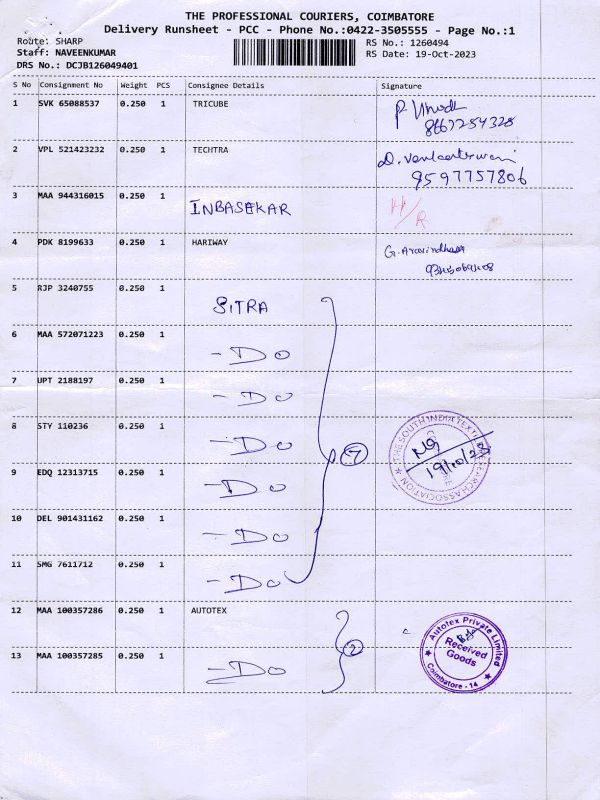 THE PROFESSIONAL COURIERS, COIMBATORE
Delivery Runsheet - PCC - Phone No.:0422-3505555 - Page No.:1
Route: SHARP
Staff: NAVEENKUMAR
DRS No.: DCJB126049401
RS No.: 1260494
RS Date: 19-Oct-2023
S No Consignment No Weight PCS Consignee Details Signature
1 SVK 65088537 0.250 1 TRICUBE
8667254328
2 VPL 521423232 0.250 1 TECHTRA
9597757806
3 MAA 944316015 0.250 1 INBASEKAR H/R
4 PDK 8199633 0.250 1 HARIWAY G. Aravindhasa
5 RJP 3240755 0.250 1 SITRA
6 MAA 572071223 0.250 1 - DO
7 UPT 2188197 0.250 1 - DO
8 STY 110236 0.250 1 - DO
9 EDQ 12313715 0.250 1 - DO
10 DEL 901431162 0.250 1 - DO
11 SMG 7611712 0.250 1 - DO
7
THE SOUTH INDIA TEXTILE RESEARCH ASSOCIATION
12 MAA 100357286 0.250 1 AUTOTEX
13 MAA 100357285 0.250 1 - DO
2
Autotex Private Limited
Received
Goods
Coimbatore - 14